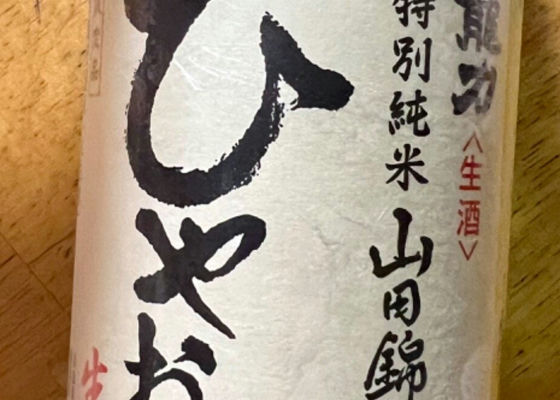 龍力
〈生酒〉
特別純米
山田錦
ひやお
生